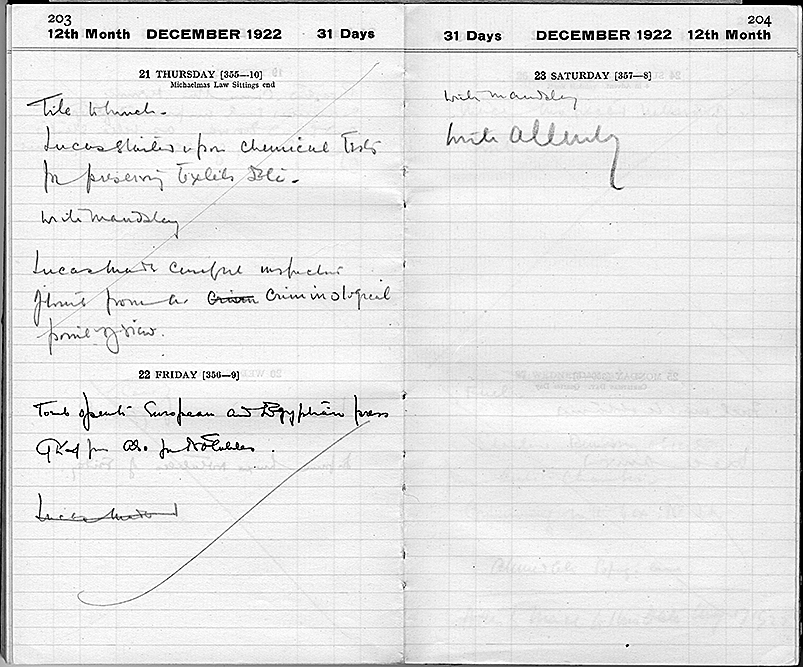 203
12th Month DECEMBER 1922 31 Days
21 THURSDAY [355—10]
Michaelmas Law Sittings end
to lunch.
Lucas started upon chemical Tests
for preserving Textiles Etc.
Write Maudslay
Lucas made careful inspection
of tomb from a Crim Criminological
point of view.
22 FRIDAY [356—9]
Tomb open to European and Egyptian press
Also for Notables.
Lucas made
204
31 Days DECEMBER 1922 12th Month
23 SATURDAY [357—8]
Write Maudslay
Write Allenby